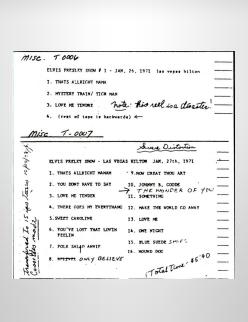 MISC. T-0006
ELVIS PRESLEY SHOW # 1 - JAN, 26, 1971 las vegas hilton
1. THATS ALLRIGHT MAMA
2. MYSTERY TRAIN/ TIGR MAN
3. LOVE ME TENDER note: this reel is a disaster!
4. (rest of tape is backwards) ←
Misc. T-0007
Some Distortion
ELVIS PRESLEY SHOW - LAS VEGAS HILTON JAN, 27th, 1971
1. THATS ALLRIGHT MAMAM
2. YOU DONT HAVE TO SAY
3. LOVE ME TENDER
4. THERE GOES MY EVERYTHANG
5. SWEET CAROLINE
6. YOU'VE LOST THAT LOVIN FEELIN
7. POLK SALAD ANNIE
8. ONLY BELIEVE
9. HOW GREAT THOU ART
10. JOHNNY B. GOODE
→ THE WONDER OF YOU
11. SOMETHING
12. MAKE THE WORLD GO AWAY
13. LOVE ME
14. ONE NIGHT
15. BLUE SUEDE SHOES
16. HOUND DOG
Total Time - 45:40
Transferred to 15 ips
Cassettes made